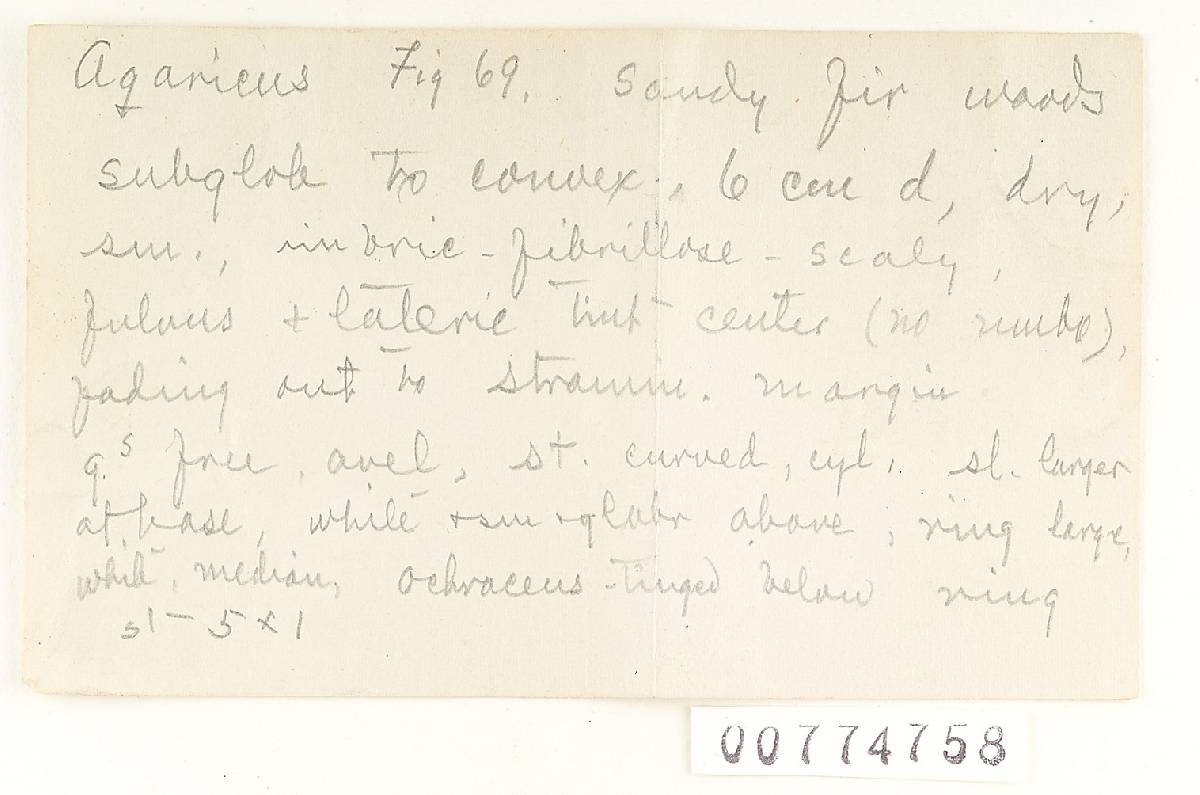 Agaricus Fig 69. Sandy fir woods
subglob to convex, 6 cm d, dry,
sm., imbric-fibrillose-scaly,
fulvous + lateric tint center (no umbo),
fading out to stramin. margin
g.s free, avel, st. curved, cyl, sl. larger
at base, white + sm + glabr above, ring large,
white, median, ochraceus-tinged below ring
st - 5 x 1
00774758